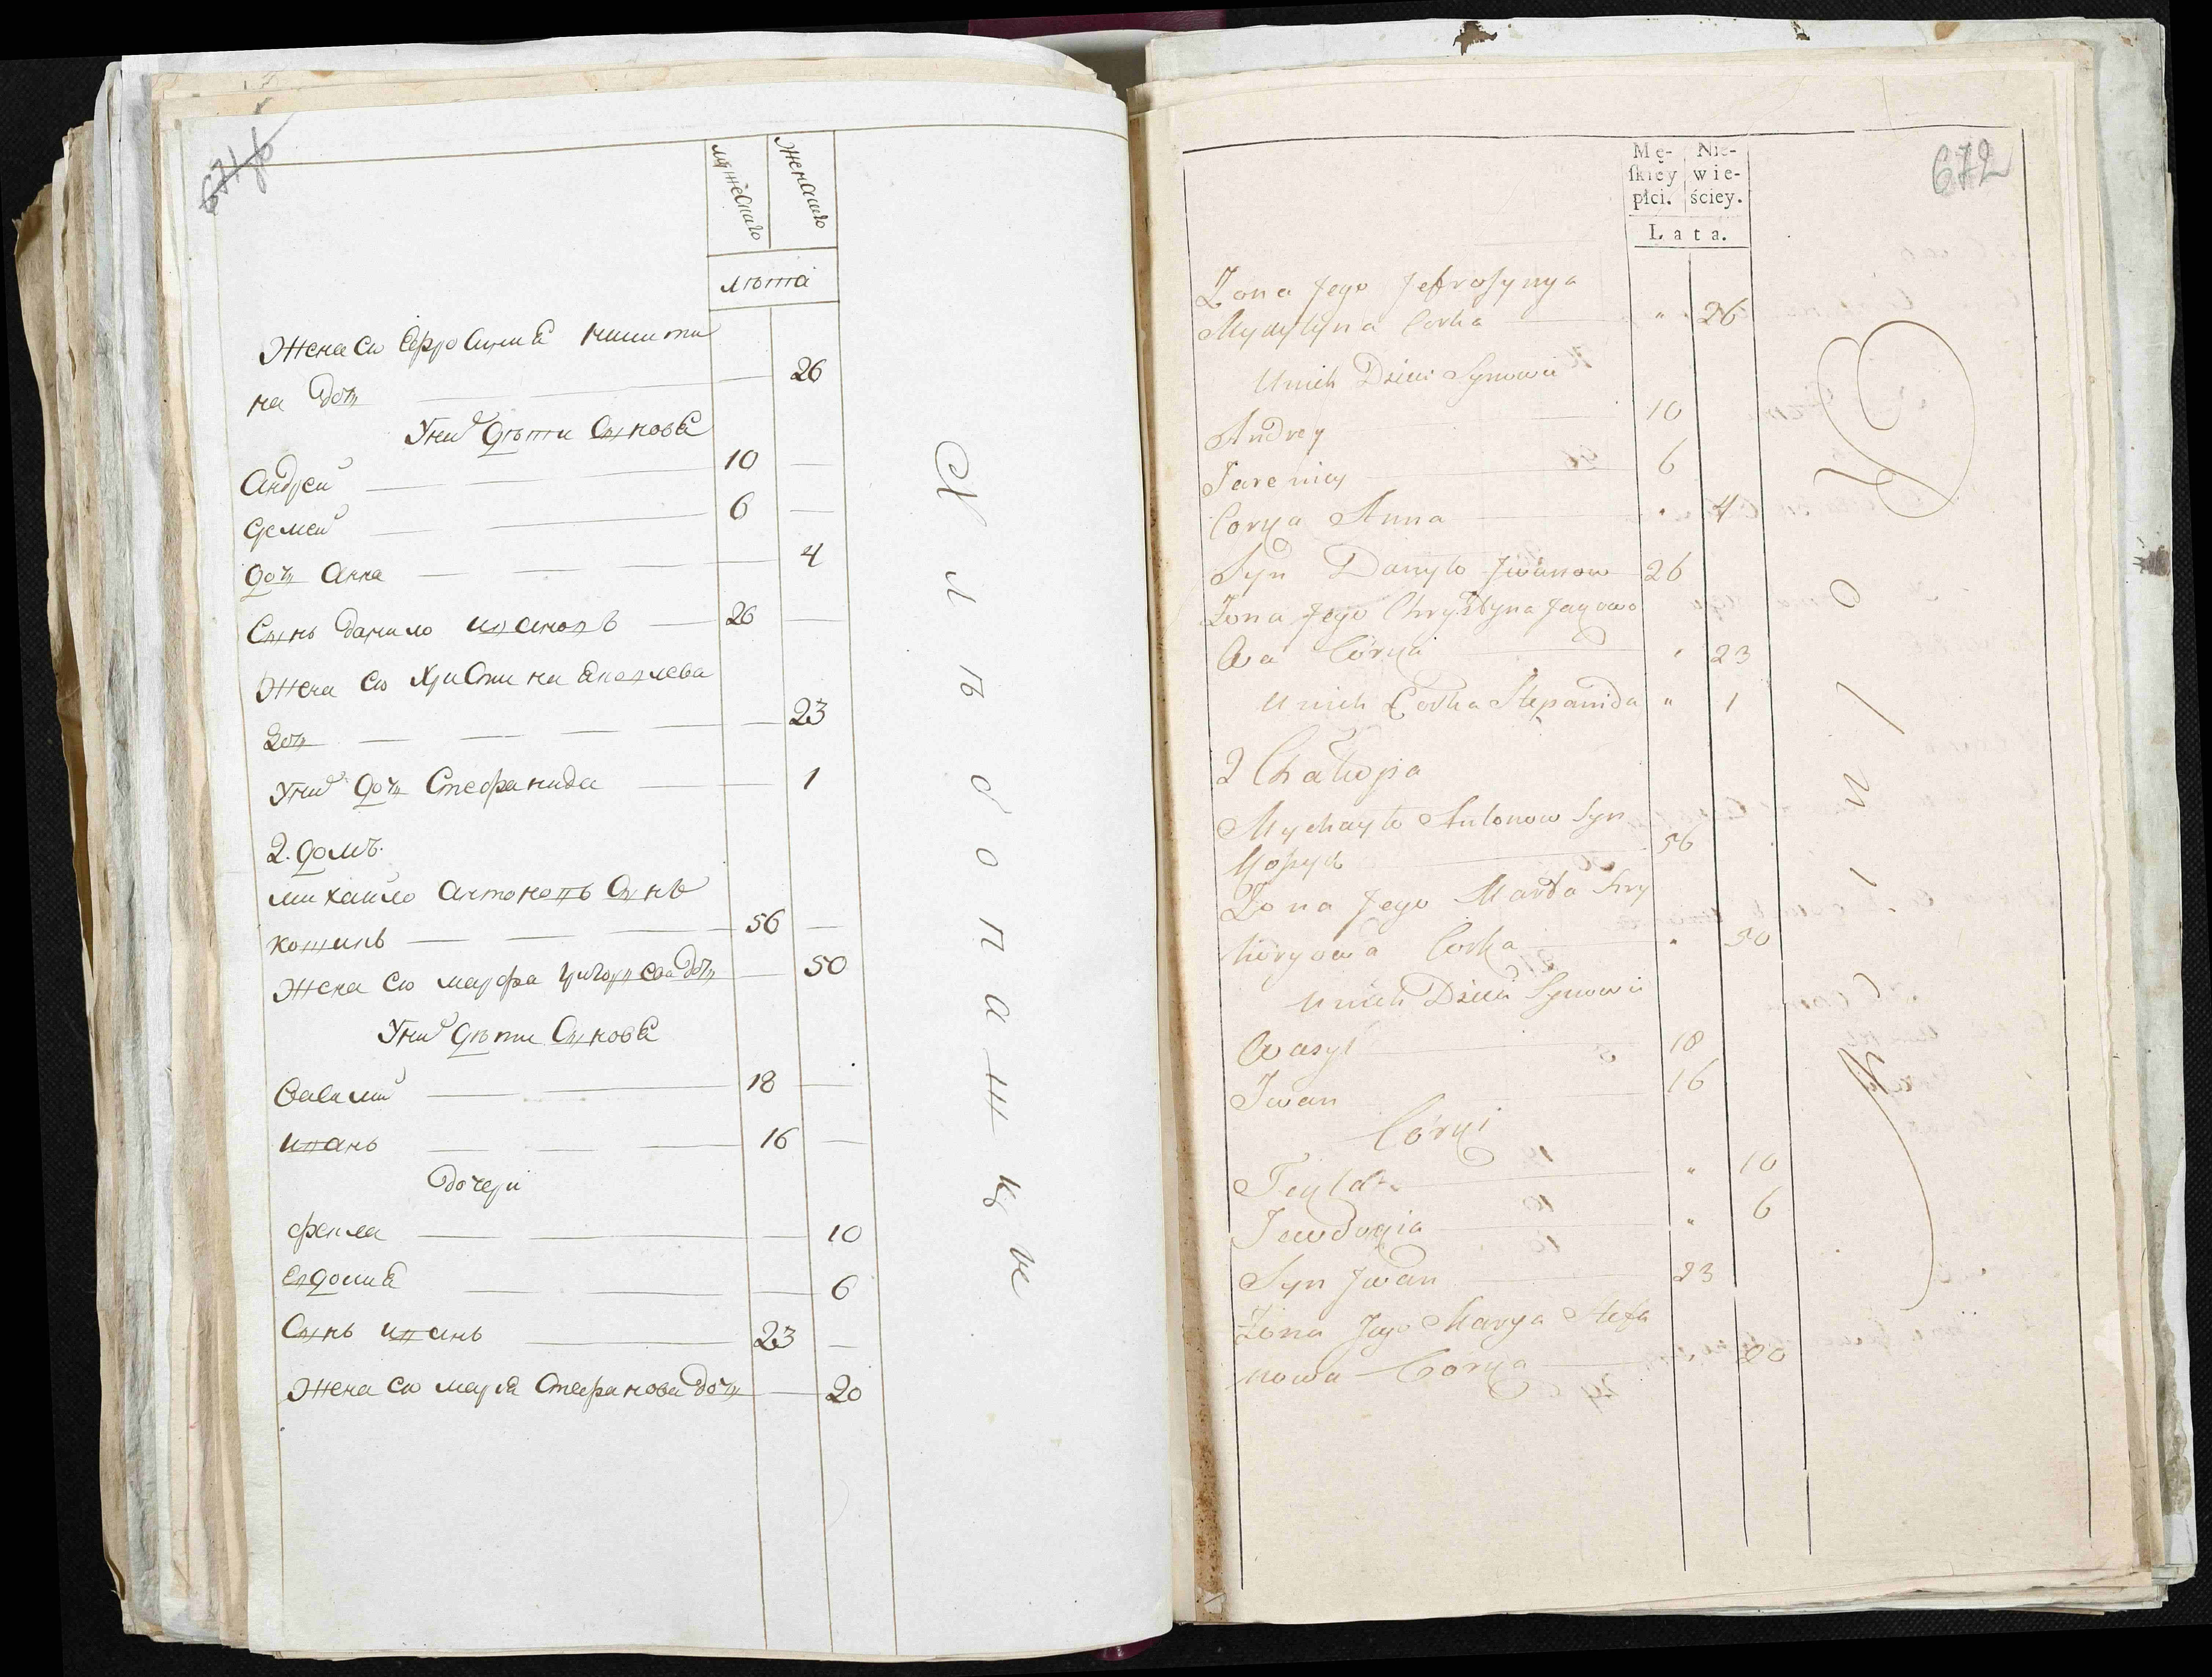 671об
мужеска
женска
лѣта
Жена ею Ефросиниа никити
на дочь — 26
У них дѣти Сынова
Андрей — 10 —
Семен — 6 —
дочь Анна — 4
Сынъ данило ивановъ — 26 —
Жена ею христина Яковлева
дочь — 23
У них дочь Стефанида — 1
2. домъ.
михайло антоновъ Сынъ
— 56 —
Жена ею марфа григорьева дочь — 50
У них дѣти Сынова
Василий — 18 —
иванъ — 16 —
дочери
фекла — 10
Евдокиа — 6
Сынъ иванъ — 23 —
Жена ею мария Стефанова дочь — 20
672
Mę-
ſkiey
płci.
Nie-
wie-
ściey.
Lata.
Zona Jego Jefrosynya
Mykytyna Corka — " 26
U nich Dzieci Synowie
Andrey — 10
6
Corka Anna — " 4
Syn Danyło Iwanow 26
Zona Jego Chrystyna Jacowo
wa Córka — " 23
U nich Corka Stepanida " 1
2 Chałupa
Mychayło Antonow Syn
— 56
Zona Jego Marta Hry
horyowa Corka — " 50
U nich Dzieci Synowie
Wasyl — 18
Iwan — 16
Córki
Tekla — " 10
Jewdokia — " 6
Syn Iwan — 23
Zona Jego Marya Stefa
nowa Corka — " 20